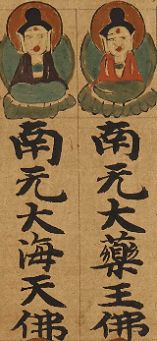 南无大藥王佛
南无大海天佛